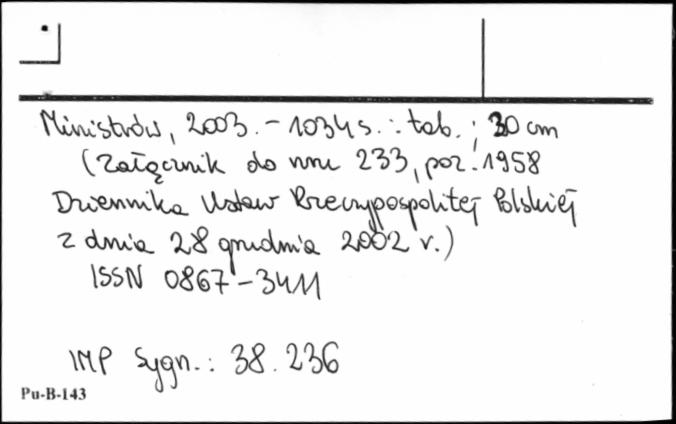 Ministrów, 2003. - 1034 s. : tab. ; 30 cm
(Załącznik do nru 233, poz. 1958
Dziennika Ustaw Rzeczypospolitej Polskiej
z dnia 28 grudnia 2002 r.)
ISSN 0867-3411
IMP Sygn.: 38.236
Pu-B-143